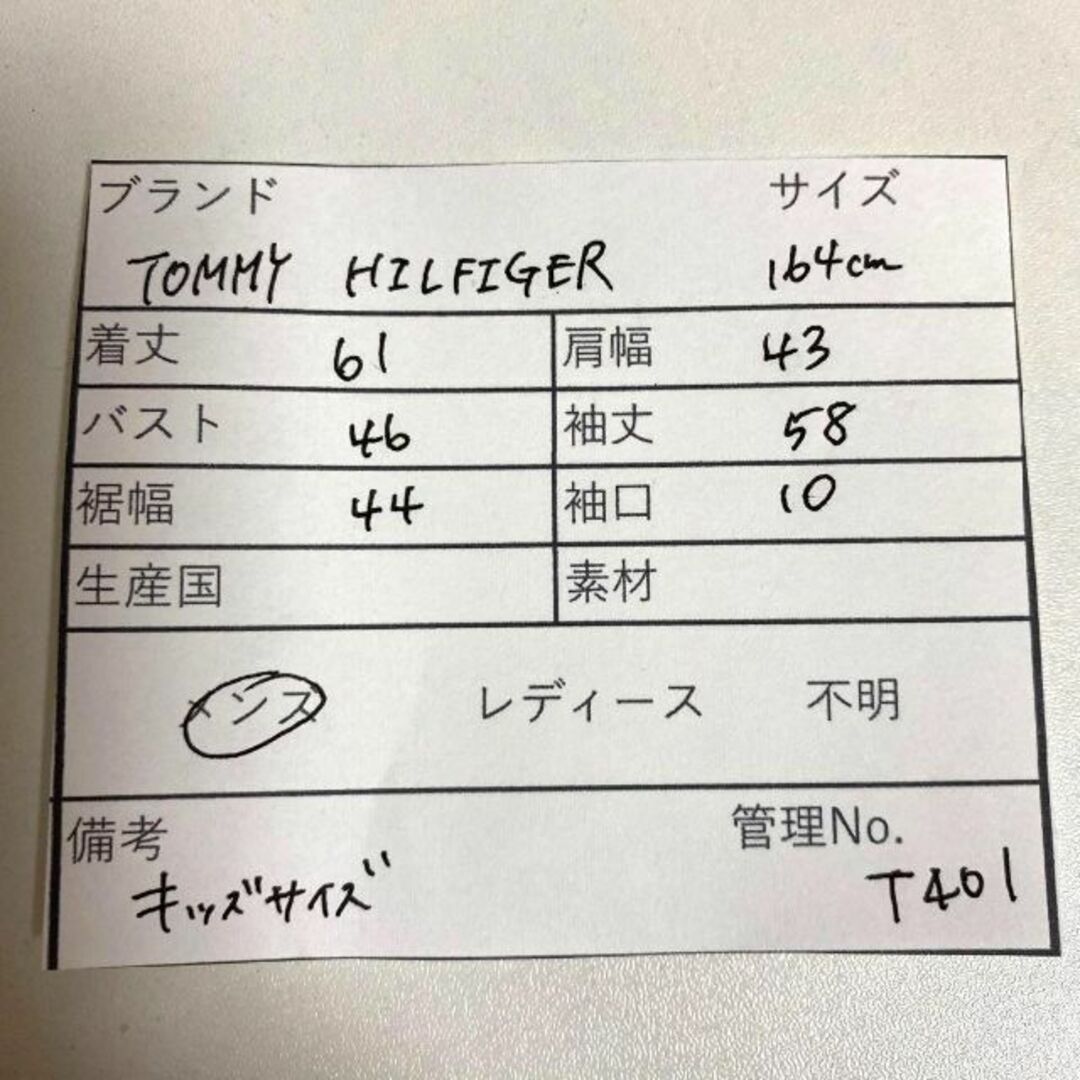 ブランド サイズ
TOMMY HILFIGER 164cm
着丈 61 肩幅 43
バスト 46 袖丈 58
裾幅 44 袖口 10
生産国 素材
メンズ レディース 不明
備考 管理No.
キッズサイズ T401